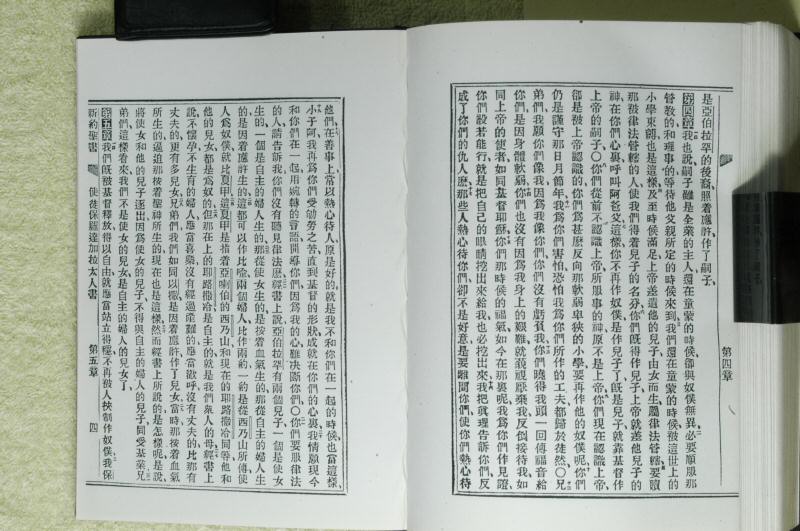 是亞伯拉罕的後裔、照着應許作了嗣子、
第四章 我也說、嗣子雖是全業的主人、還在童蒙的時候、卻與奴僕無異、必要順服那
管敎的和理事的、等待他父親所定的時候來到、我們還在童蒙的時候、被這世上的
小學束縛、也是這樣、及至時候滿足、上帝差遣他的兒子、由女而生、屬律法管轄、要贖
那被律法管轄的人、使我們得着兒子的名分、你們旣得作兒子、上帝就差他兒子的
神、在你們心裏、呼叫阿爸父、這樣、你不再作奴僕、是作兒子了、旣是兒子、就靠基督作
上帝的嗣子〇你們從前不認識上帝、所服事的神、原不是上帝、你們現在認識上帝、
卻是被上帝認識的、你們爲甚麽反向那軟弱卑狹的小學、要再作他的奴僕呢、你們
仍是謹守那日月節年、我爲你們害怕、恐怕我爲你們所作的工夫、都歸於徒然〇兄
弟們、我願你們像我、因爲我像你們、你們沒有虧負我、你們曉得我頭一回傳福音給
你們、是因身體軟弱、你們也沒有因爲我身上的艱難、就藐視厭棄我、反倒接待我、如
同上帝的使者、如同基督耶穌、你們那時候的福氣、如今在那裏呢、我爲你們作見證、
你們設若能行、就是把自己的眼睛挖出來給我、也必挖出來、我把眞理告訴你們、反
成了你們的仇人麽、那些人熱心待你們、卻不是好意、是要離間你們、使你們熱心待
第四章
他們、在善事上、常以熱心待人、原是好的、就是我不和你們在一起的時候、也當這樣、
小子阿、我再爲你們受劬勞之苦、直到基督的形狀成就在你們的心裏、我情願現今
和你們在一起、用婉轉的言語開導你們、因爲我的心難決斷你們〇你們要服律法
的人、請告訴我、你們沒有聽見律法麽、經書上說、亞伯拉罕有兩個兒子、一個是使女
生的、一個是自主的婦人生的、那從使女生的、是按着血氣生的、那從自主的婦人生
的、是因着應許生的、這都可以作比喩、兩個婦人、比作兩約、一約是從西乃山所傳、使
人爲奴僕、就比夏甲、這夏甲是指着亞喇伯的西乃山、和現在的耶路撒冷同等、他和
他的兒女、都是爲奴的、但那在上的耶路撒冷、是自主的、就是我們衆人的母、經書上
說、不懷孕不生育的婦人、應當喜樂、沒有經過產難的、應當歡呼、沒有丈夫的、比那有
丈夫的、更有多兒女、兄弟們、我們如同以撒、是因着應許作了兒女、當時那按着血氣
所生的、逼迫那按着聖神所生的、現在也是這樣、然而經書上所說的是怎樣呢、是說、
將使女和他的兒子逐出、因爲使女的兒子、不得與自主的婦人的兒子、同受基業、兄
弟們、這樣看來、我們不是使女的兒女、是自主的婦人的兒女了、
第五章 我們旣被基督釋放、得以自由、就應當站立得穩、不再被人挾制作奴僕、我保
新約聖書 使徒保羅達加拉太人書 第五章 四